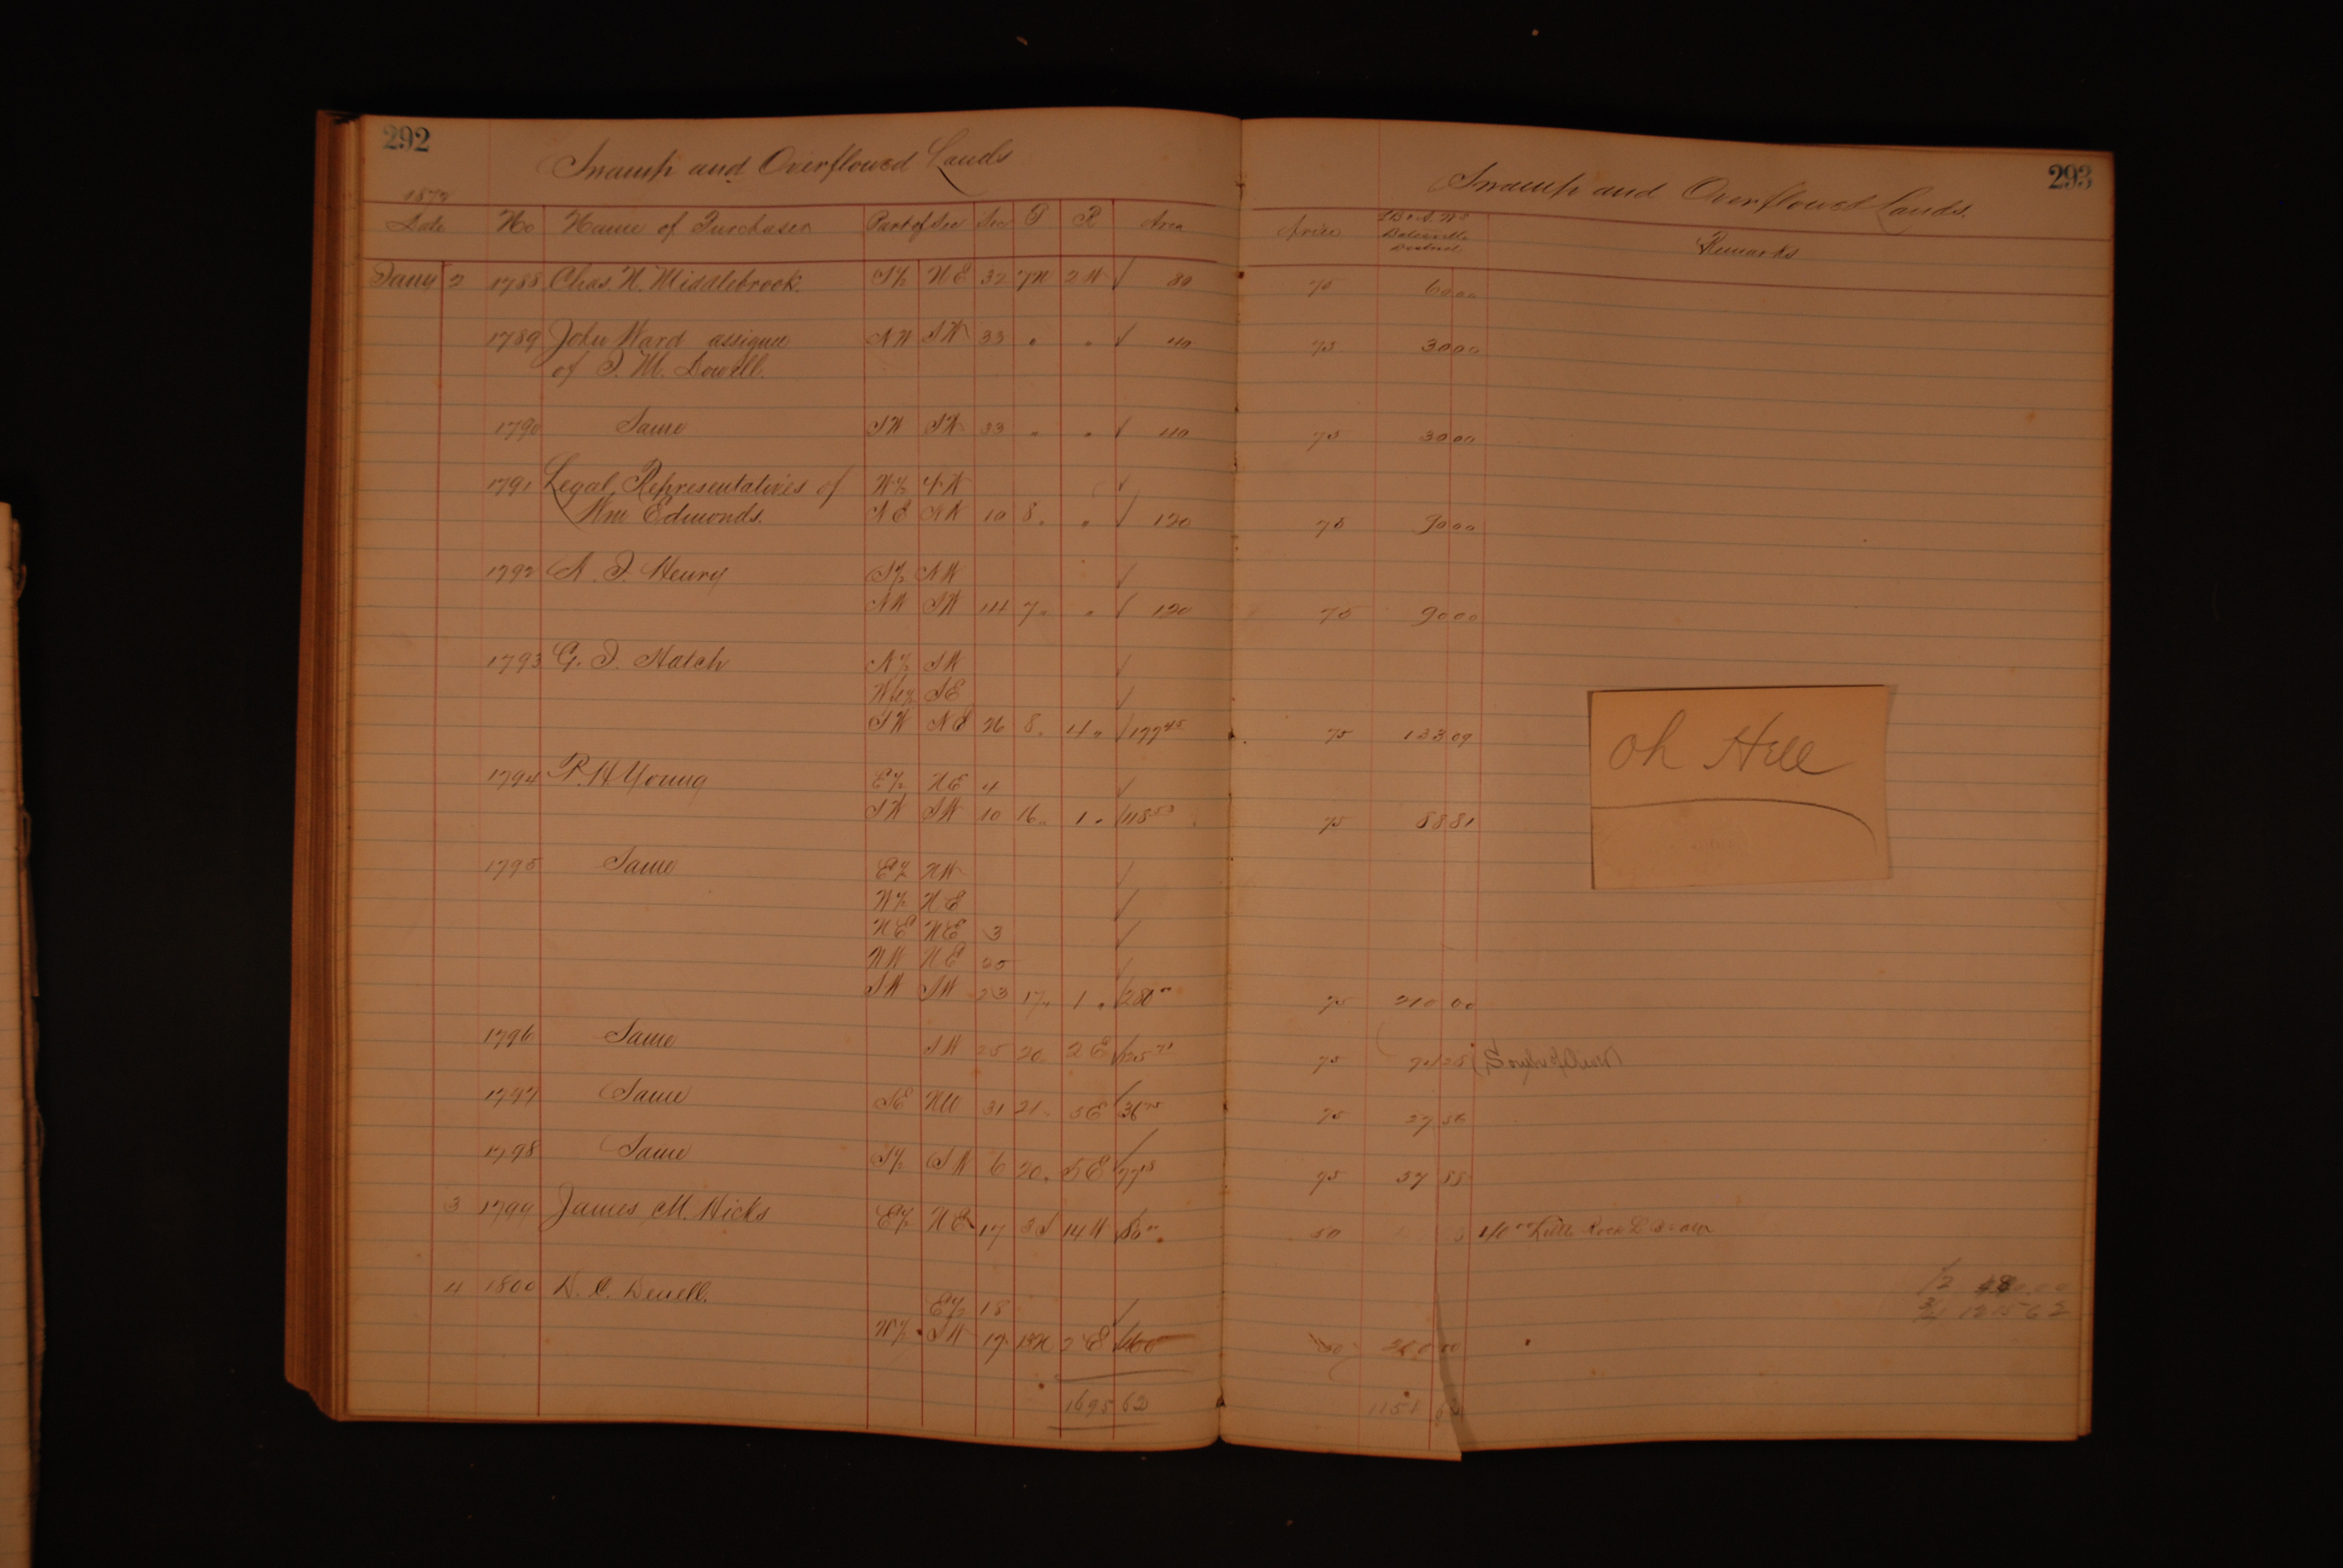 292
Swamp and Overflowed Lands
Date No Name of Purchaser Part of Sec Sec T R Area
Jany 2 1788 Chas. N. Middlebrook. S½ NE 32 7N 2W √ 80
1789 John Ward assignee NW SW 33 " " √ 40
of T. M. Dowell.
1790 Same SW SW 33 " " √ 40
1791 Legal Representatives of W½ √
Wm Edmonds. NE NW 10 8 " " √ 120
1792 A. T. Henry S½ NW √
NW SW 14 7 " " √ 120
1793 G. T. Hatch N½ SW √
SE √
SW NE 26 8 " 4 " √ 177 45
1794 P. H. Young E½ NE 4 √
SW SW 10 16 " 1 " √
1795 Same E½ NW √
W½ NE √
NE NE 3 √
NW NE 25 √
SW SW 23 17 " 1 " √ 280
1796 Same SW 25 20 " 2E √
1797 Same SE NW 31 21 " 5E √
1798 Same S½ SW 6 20 " 5E √
3 1799 James M. Hicks E½ NE 17 3S 14W √ 80
4 1800 D. C. Dewell. E½ 18 √
W½ SW 17 2E √
1695 62
293
Swamp and Overflowed Lands.
Price Batesville District Remarks
75 60 00
75 30 00
75 30 00
75 90 00
75 90 00
75 133 09
75 88 81
75 210 00
75
75 27 56
75 57 88
50 Little Rock
1151
½
¾ 1215 62
oh Hell